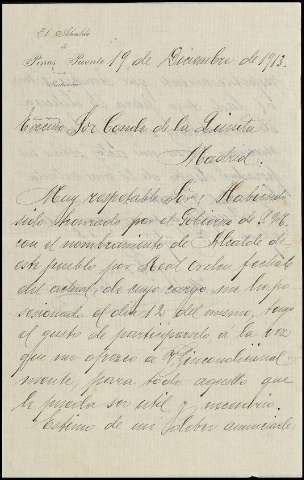 El Alcalde
de
Pinos Puente 19 de Diciembre de 1913.
Excmo Sor Conde de la
Madrid.
Muy respetable Sor: Habiendo
sido honrado por el Gobierno de S.M.
con el nombramiento de Alcalde de
este pueblo por Real orden fechada
del actual, de cuyo cargo me he po-
sesionado el dia 12 del mismo, tengo
el gusto de participarselo a la vez
que me ofrezco a V. incondicional-
mente, para todo aquello que
le pueda ser util y necesario.
Estimo de mi deber anunciarle